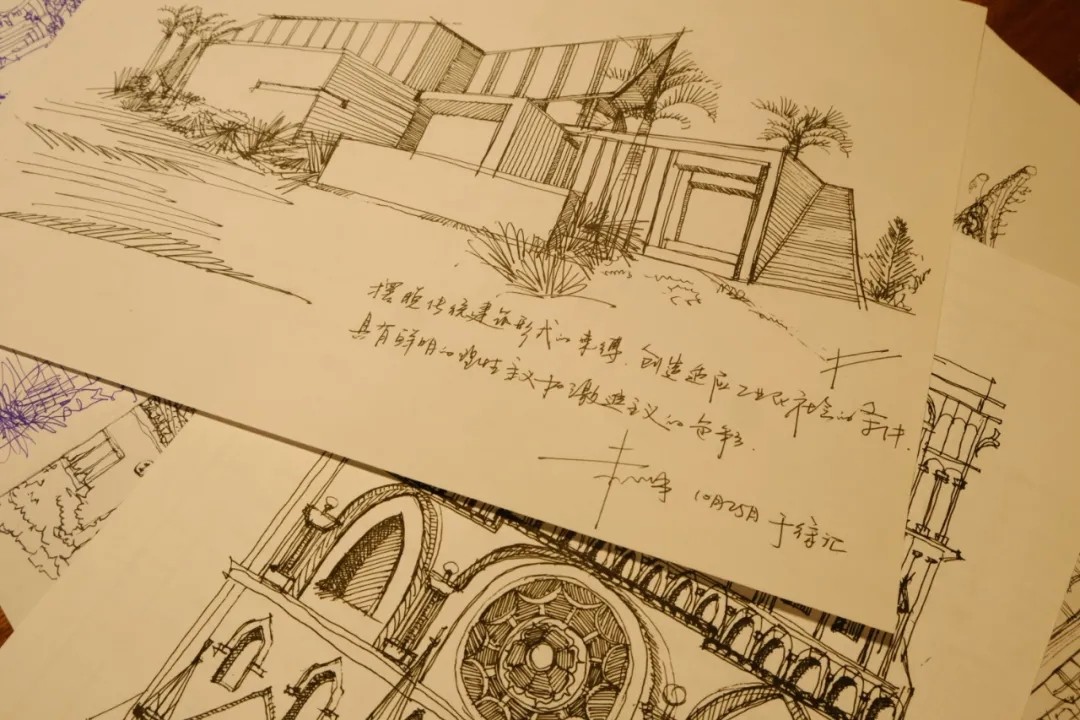 摆脱传统建筑形式的束缚,创造适应工业化社会的条件,
具有鲜明的理性主义和激进主义的色彩.
10月25日 于徐汇